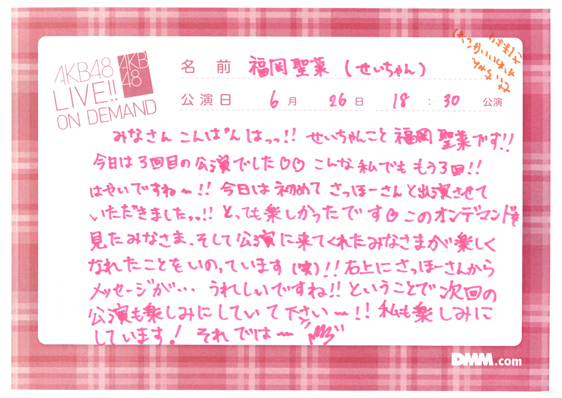 AKB48
LIVE!!
ON DEMAND
AKB
48
名 前 福岡聖菜(せいちゃん)
公演日 6 月 26 日 18 : 30 公演
みなさんこんばんはっっ!! せいちゃんこと福岡聖菜です!!
今日は3回目の公演でした♡♡ こんな私でももう3回!!
はせいですね〜!! 今日は初めてさっほーさんと出演させて
いただきましたっっ!! とっても楽しかったです♡このオンデマンドを
見たみなさま、そして公演に来てくれたみなさまが楽しく
なれたことをいのっています(笑)!! 右上にさっほーさんから
メッセージが... うれしいですね!! ということで次回の
公演も楽しみにしていて下さい〜!! 私も楽しみに
しています! それでは〜
DMM.com